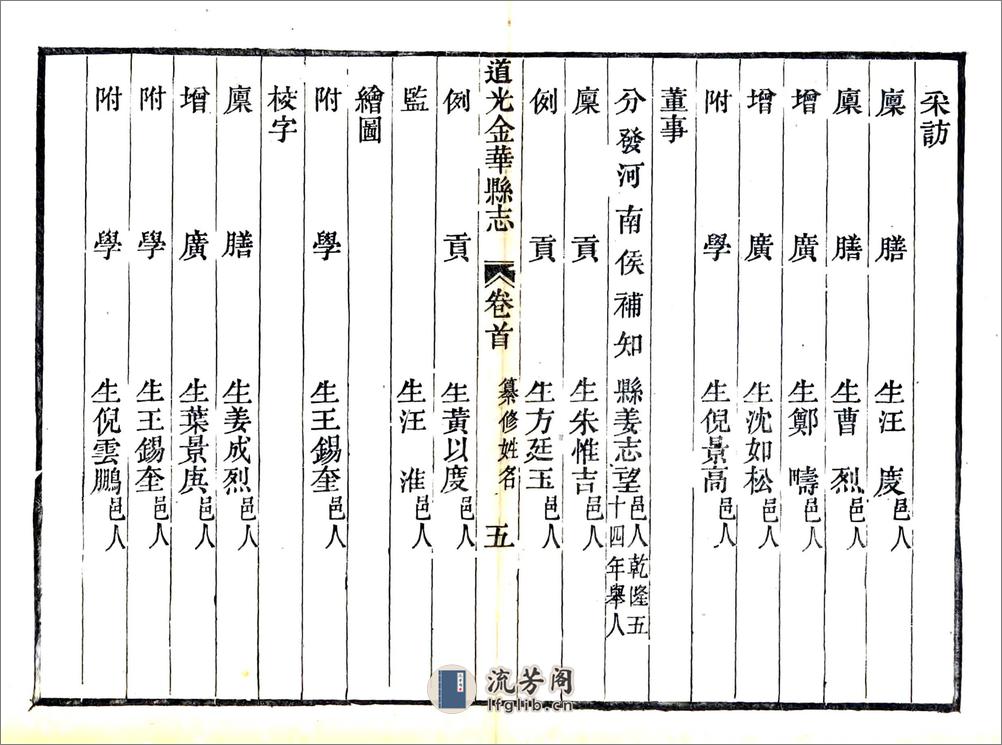 采訪
廩膳生汪慶邑人
廩膳生曹烈邑人
增廣生鄭疇邑人
增廣生沈如松邑人
附學生倪景高邑人
董事
分發河南侯補知縣姜志望邑人乾隆五十四年舉人
廩貢生朱惟吉邑人
例貢生方廷玉邑人
道光金華縣志 卷首 纂修姓名 五
例貢生黃以度邑人
監生汪淮邑人
繪圖
附學生王錫奎邑人
校字
廩膳生姜成烈邑人
增廣生葉景庚邑人
附學生王錫奎邑人
附學生倪雲鵬邑人
流芳阁
lfglib.cn